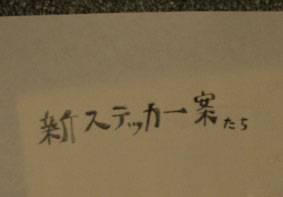 新ステッカー案たち